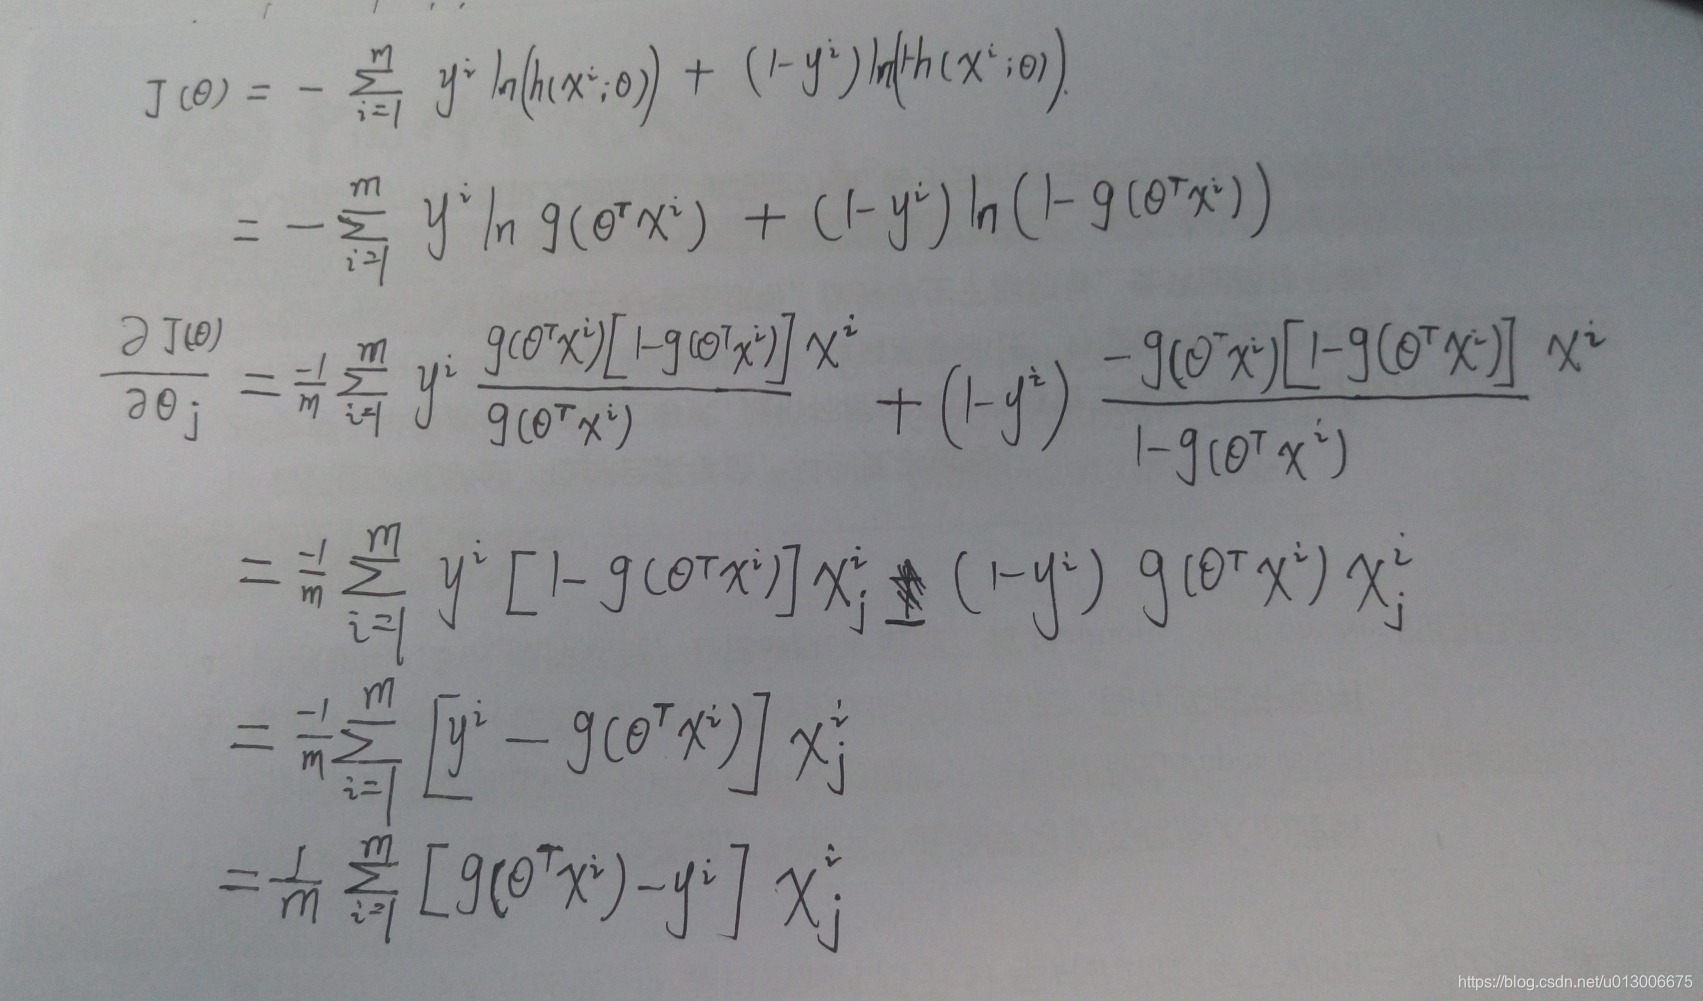 J(θ) = - ∑_{i=1}^{m} y^i ln(h(x^i;θ)) + (1-y^i) ln(1-h(x^i;θ)).
= - ∑_{i=1}^{m} y^i ln g(θ^T x^i) + (1-y^i) ln(1-g(θ^T x^i))
∂J(θ)/∂θ_j = -1/m ∑_{i=1}^{m} y^i g(θ^T x^i)[1-g(θ^T x^i)]/g(θ^T x^i) x^i + (1-y^i) -g(θ^T x^i)[1-g(θ^T x^i)]/1-g(θ^T x^i) x^i
= -1/m ∑_{i=1}^{m} y^i [1-g(θ^T x^i)] x_j^i - (1-y^i) g(θ^T x^i) x_j^i
= -1/m ∑_{i=1}^{m} [y^i - g(θ^T x^i)] x_j^i
= 1/m ∑_{i=1}^{m} [g(θ^T x^i) - y^i] x_j^i
https://blog.csdn.net/u013006675